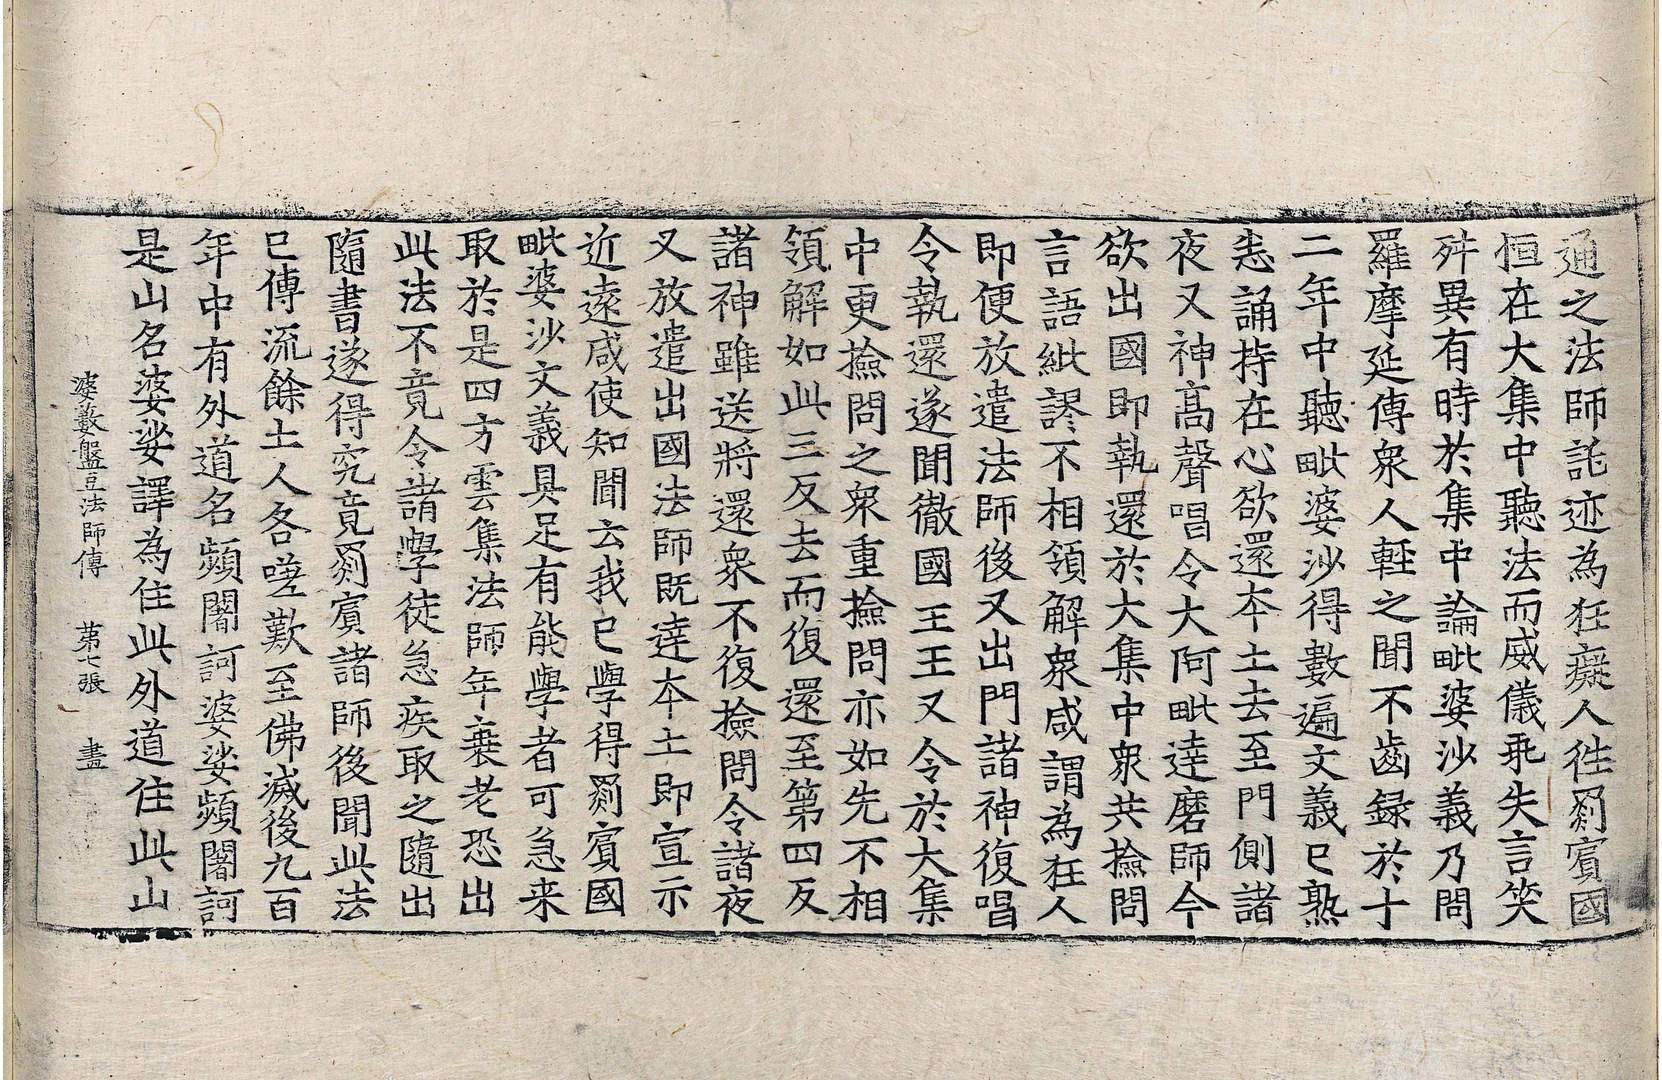 通之法師託迹為狂癡人往罽賓國
恒在大集中聽法而威儀乖失言笑
舛異有時於集中論毗婆沙義乃問
羅摩延傳衆人輕之聞不齒録於十
二年中聽毗婆沙得數遍文義已熟
悉誦持在心欲還本土去至門側諸
夜叉神高聲唱令大阿毗達磨師今
欲出國即執還於大集中衆共撿問
言語紕謬不相領解衆咸謂為狂人
即便放遣法師後又出門諸神復唱
令執還遂聞徹國王王又令於大集
中更撿問之衆重撿問亦如先不相
領解如此三反去而復還至第四反
諸神雖送將還衆不復撿問令諸夜
叉放遣出國法師既達本土即宣示
近遠咸使知聞云我已學得罽賓國
毗婆沙文義具足有能學者可急来
取於是四方雲集法師年衰老恐出
此法不竟令諸學徒急疾取之隨出
隨書遂得究竟罽賓諸師後聞此法
已傳流餘土人各嗟歎至佛滅後九百
年中有外道名頻闍訶婆娑頻闍訶
是山名婆娑譯為住此外道住此山
婆藪盤豆法師傳 第七張 畫